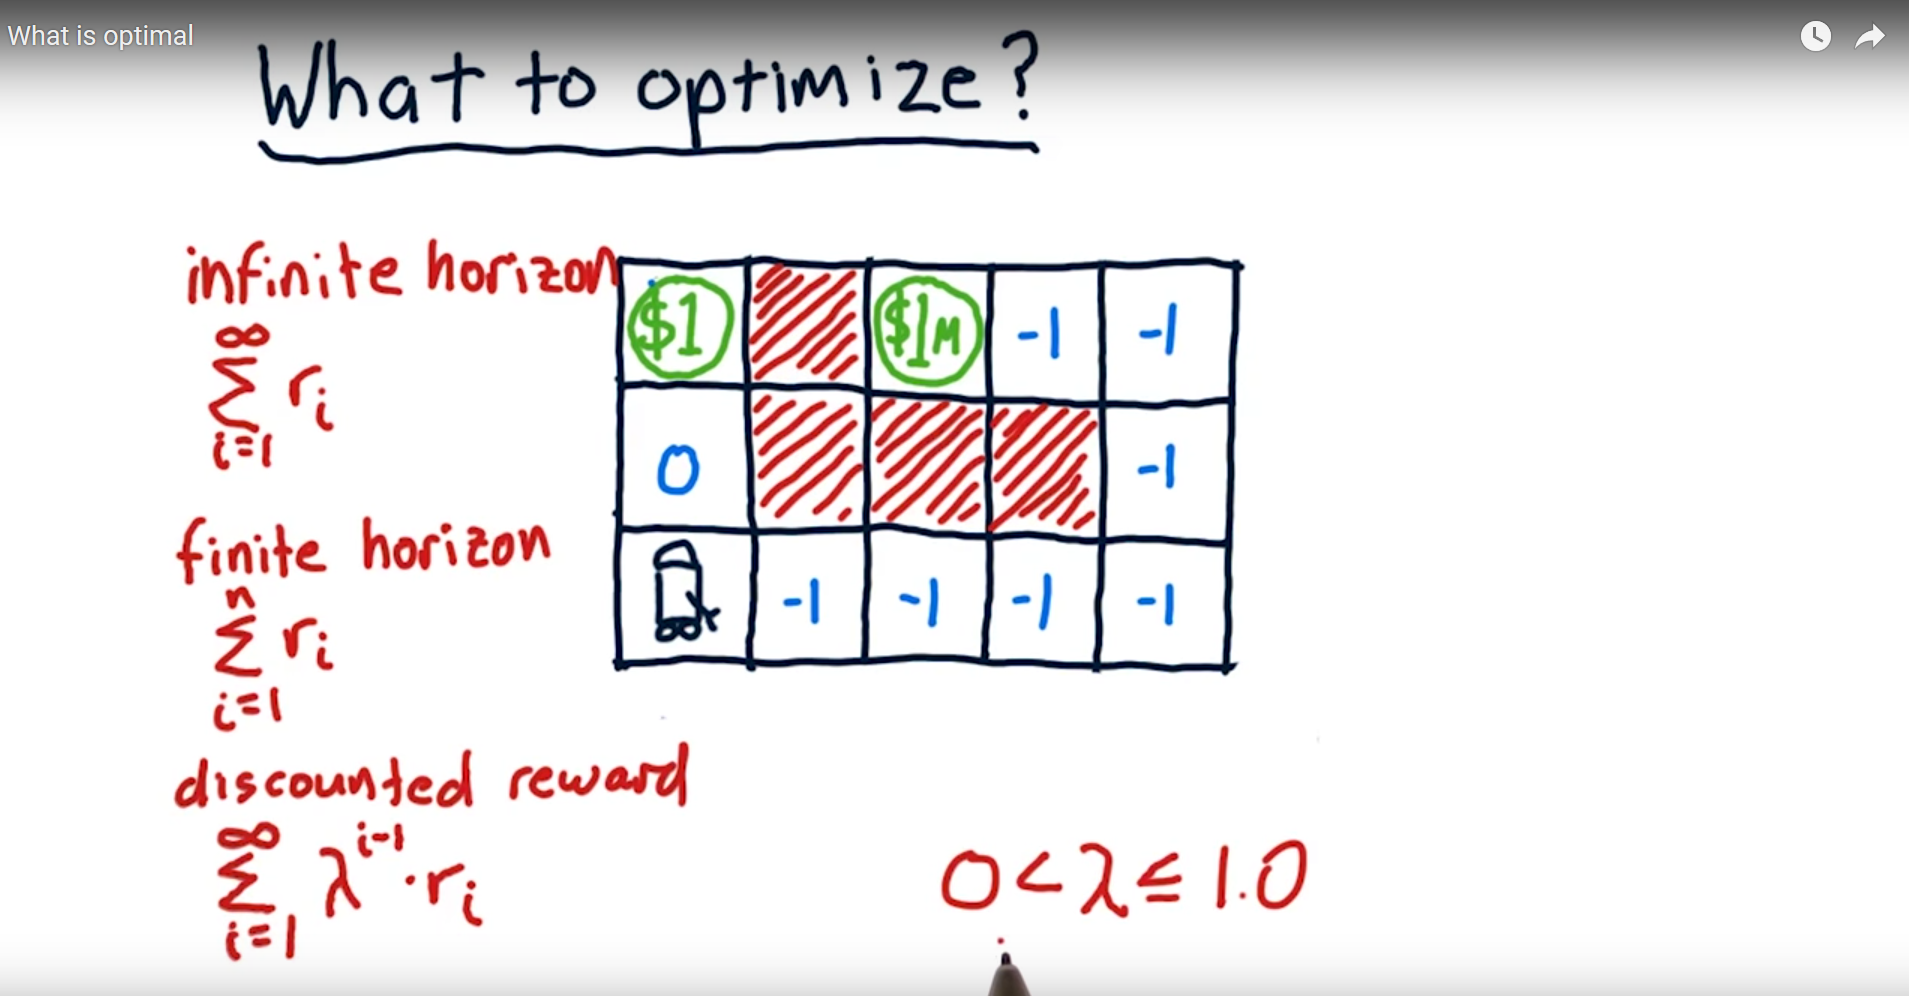 What is optimal
What to optimize?
infinite horizon
∞
Σ rᵢ
i=1
finite horizon
n
Σ rᵢ
i=1
discounted reward
∞
Σ λⁱ⁻¹ · rᵢ
i=1
$1 $1M -1 -1
0 -1
-1 -1 -1 -1
0 < λ ≤ 1.0